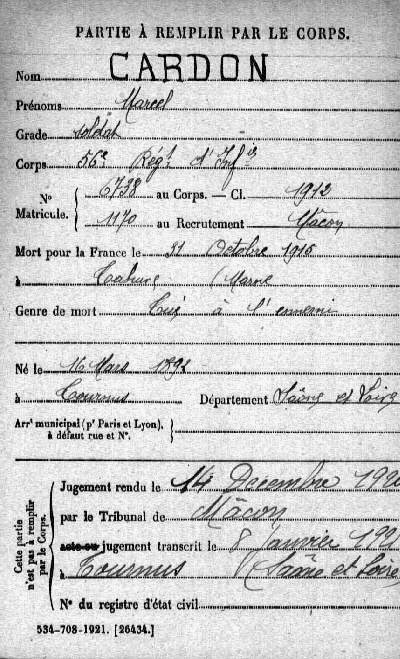 PARTIE À REMPLIR PAR LE CORPS.
Nom CARDON
Prénoms Marcel
Grade soldat
Corps 56e Régt d'Infie
No Matricule. { 6738 au Corps. — Cl. 1912
1170 au Recrutement Mâcon
Mort pour la France le 31 Octobre 1915
à Tahure (Marne
Genre de mort Tué à l'ennemi
Né le 16 Mars 1892
à Tournus Département Saône et Loire
Arrt municipal (pr Paris et Lyon), à défaut rue et No.
Cette partie n'est pas à remplir par le Corps.
Jugement rendu le 14 Decembre 192
par le Tribunal de Mâcon
acte ou jugement transcrit le 8 Janvier 192
à Tournus Saône et Loire
No du registre d'état civil
534-708-1921. [26434.]